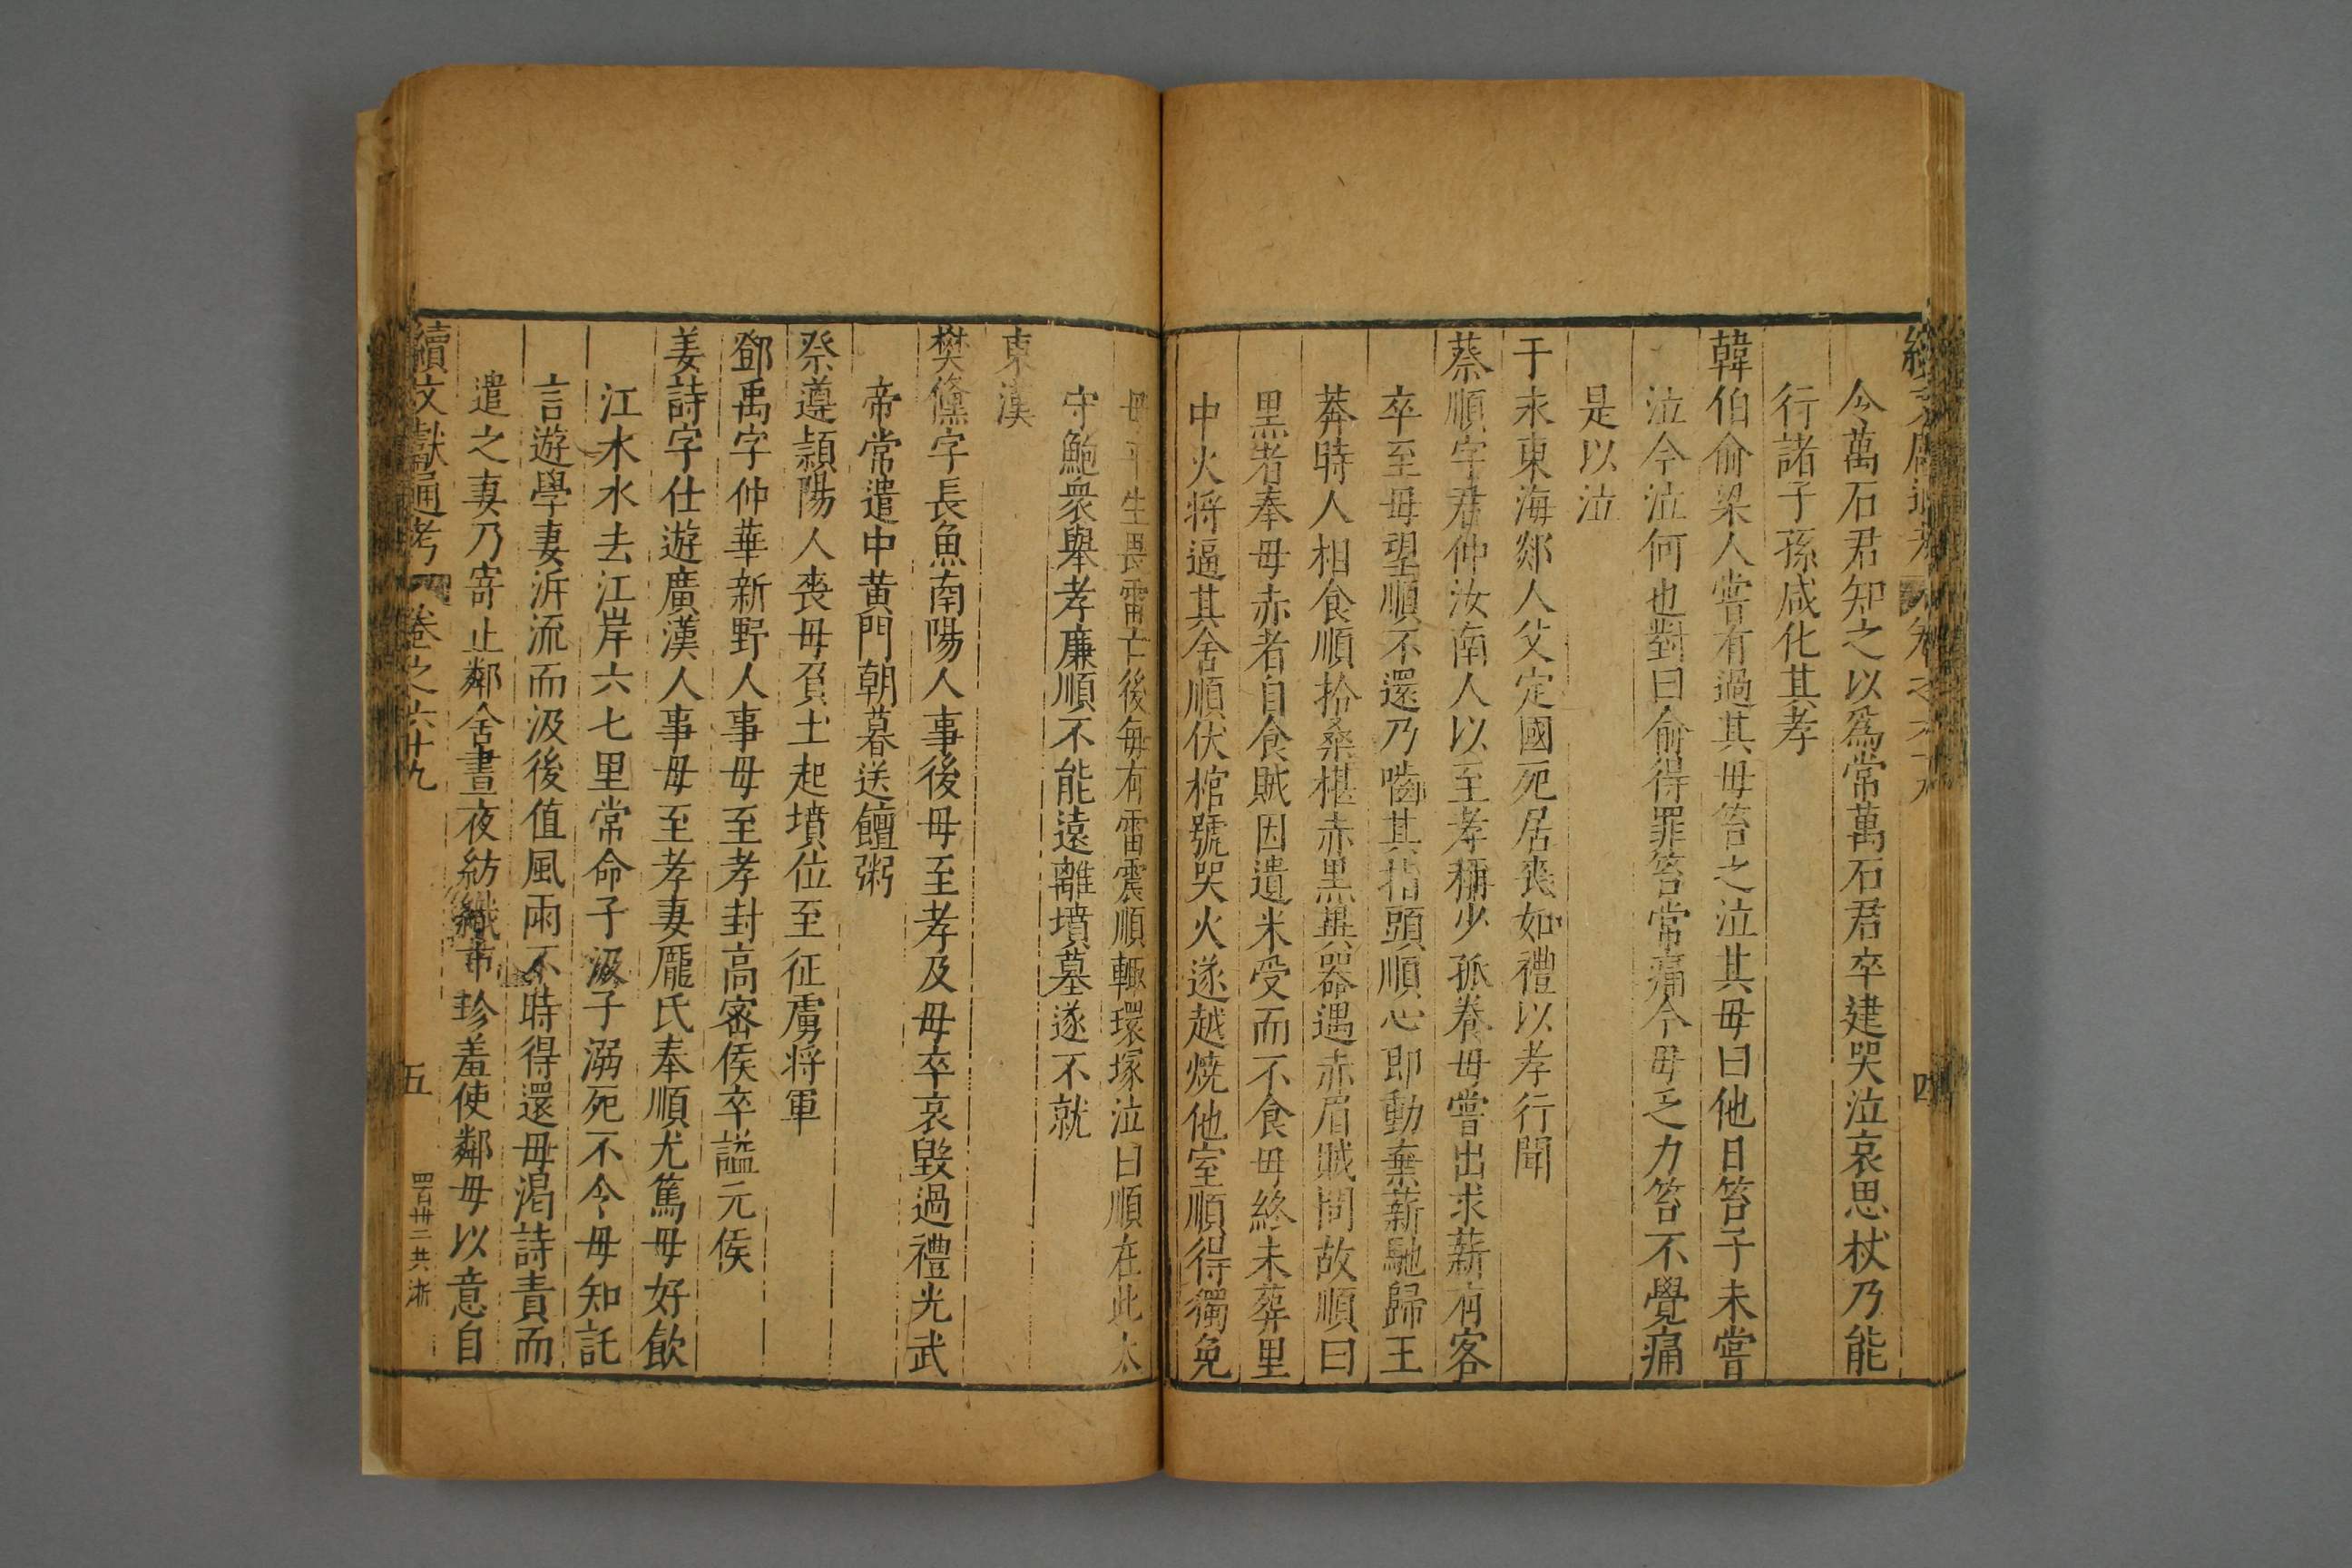 今萬石君知之以爲常萬石君卒建哭泣哀思杖乃能
行諸子孫咸化其孝
韓伯俞梁人嘗有過其母笞之泣其母曰他日笞子未嘗
泣今泣何也對曰俞得罪笞常痛今母之力笞不覺痛
是以泣
于永東海郯人父定國死居喪如禮以孝行聞
蔡順字君仲汝南人以至孝稱少孤養母嘗出求薪有客
卒至母望順不還乃嚙其指頭順心即動棄薪馳歸王
莽時人相食順拾桑椹赤黑異器遇赤眉賊問故順曰
黒者奉母赤者自食賊因遺米受而不食母終未葬里
中火将逼其舍順伏棺號哭火遂越燒他室順得獨免
母平生畏雷亡後每有雷震順輒環塚泣曰順在此太
守鮑衆舉孝廉順不能遠離墳墓遂不就
東漢
樊儵字長魚南陽人事後母至孝及母卒哀毀過禮光武
帝常遣中黃門朝暮送饘粥
祭遵頴陽人喪母負土起墳位至征虜将軍
鄧禹字仲華新野人事母至孝封高密侯卒謚元侯
姜詩字仕遊廣漢人事母至孝妻龐氏奉順尤篤母好飲
江水水去江岸六七里常命子汲子溺死不令母知託
言遊學妻泝流而汲後值風雨不時得還母渴詩責而
遣之妻乃寄止鄰舍晝夜紡織市珍羞使鄰母以意自
續文獻通考 卷之六十九 五 四百卅三 共 淅